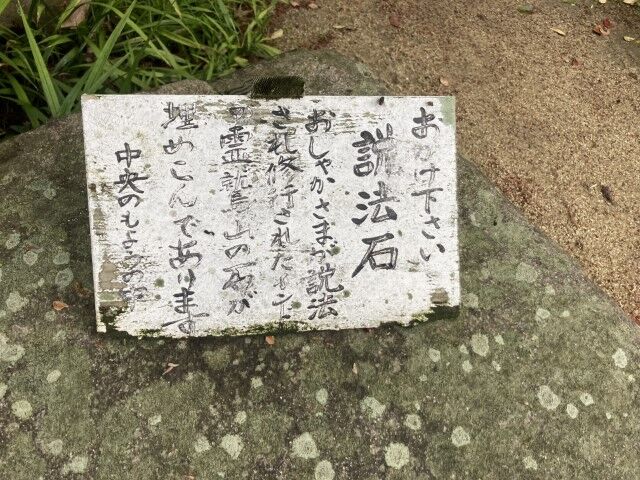 おかけ下さい
説法石
おしゃかさまが説法
され修行されたインド
の霊鷲山の石が
埋めこんであります
中央のもようの